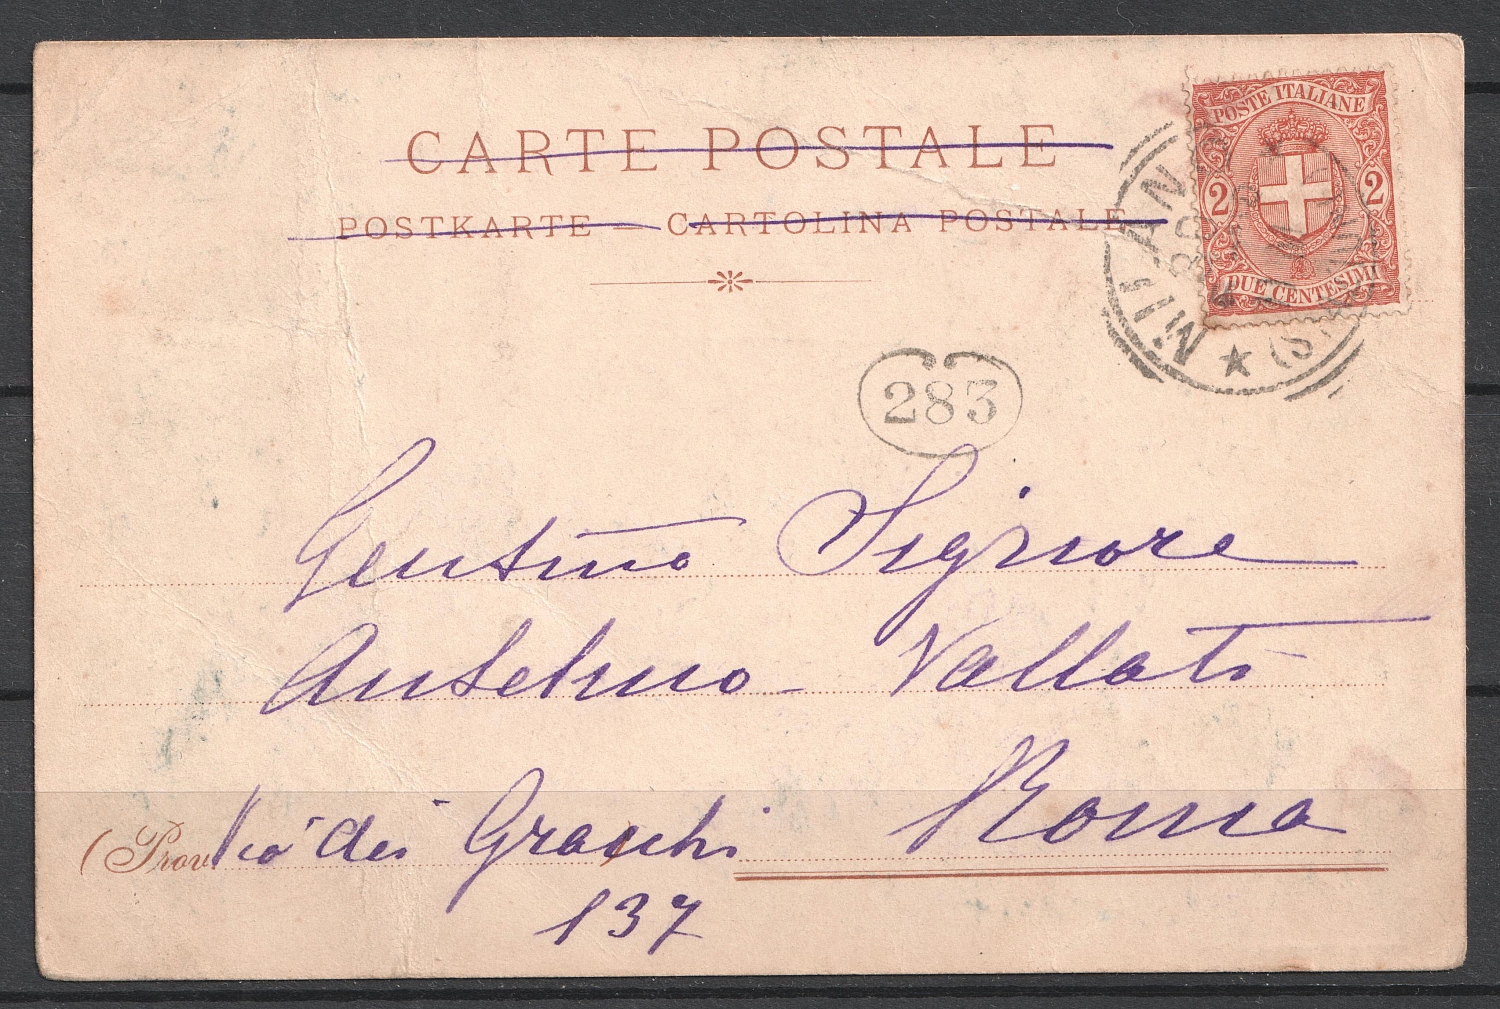 CARTE POSTALE
POSTKARTE — CARTOLINA POSTALE
POSTE ITALIANE
2 2
DUE CENTESIMI
MILANO
283
Gentmo Signore
Anselmo Vallati
Roma
(Prov
Via dei Gracchi
137